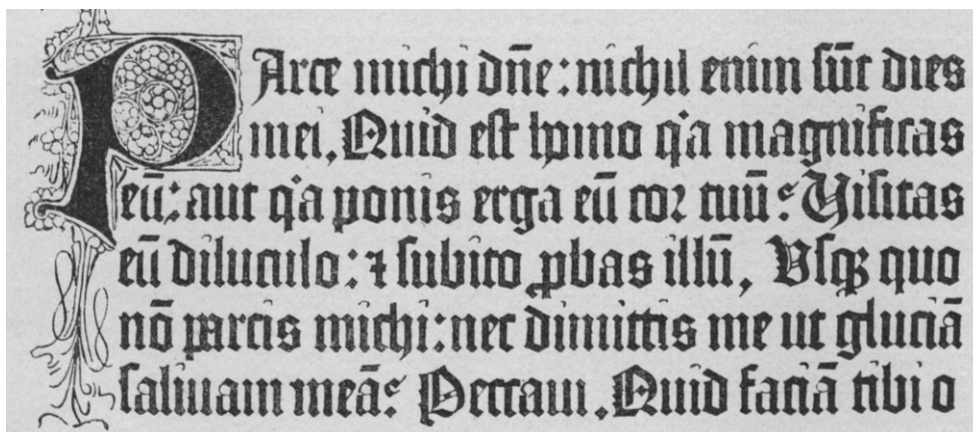 PArce michi dñe: nichil enim sūt dies
mei, Quid est homo qͥa magnificas
eū: aut qͥa ponis erga eū cor tuū: Uisitas
eū diluculo: ⁊ subito ꝓbas illū, Usqꝫ quo
nō parcis michi: nec dimittis me ut gluciā
saliuam meā: Peccaui. Quid faciā tibi o